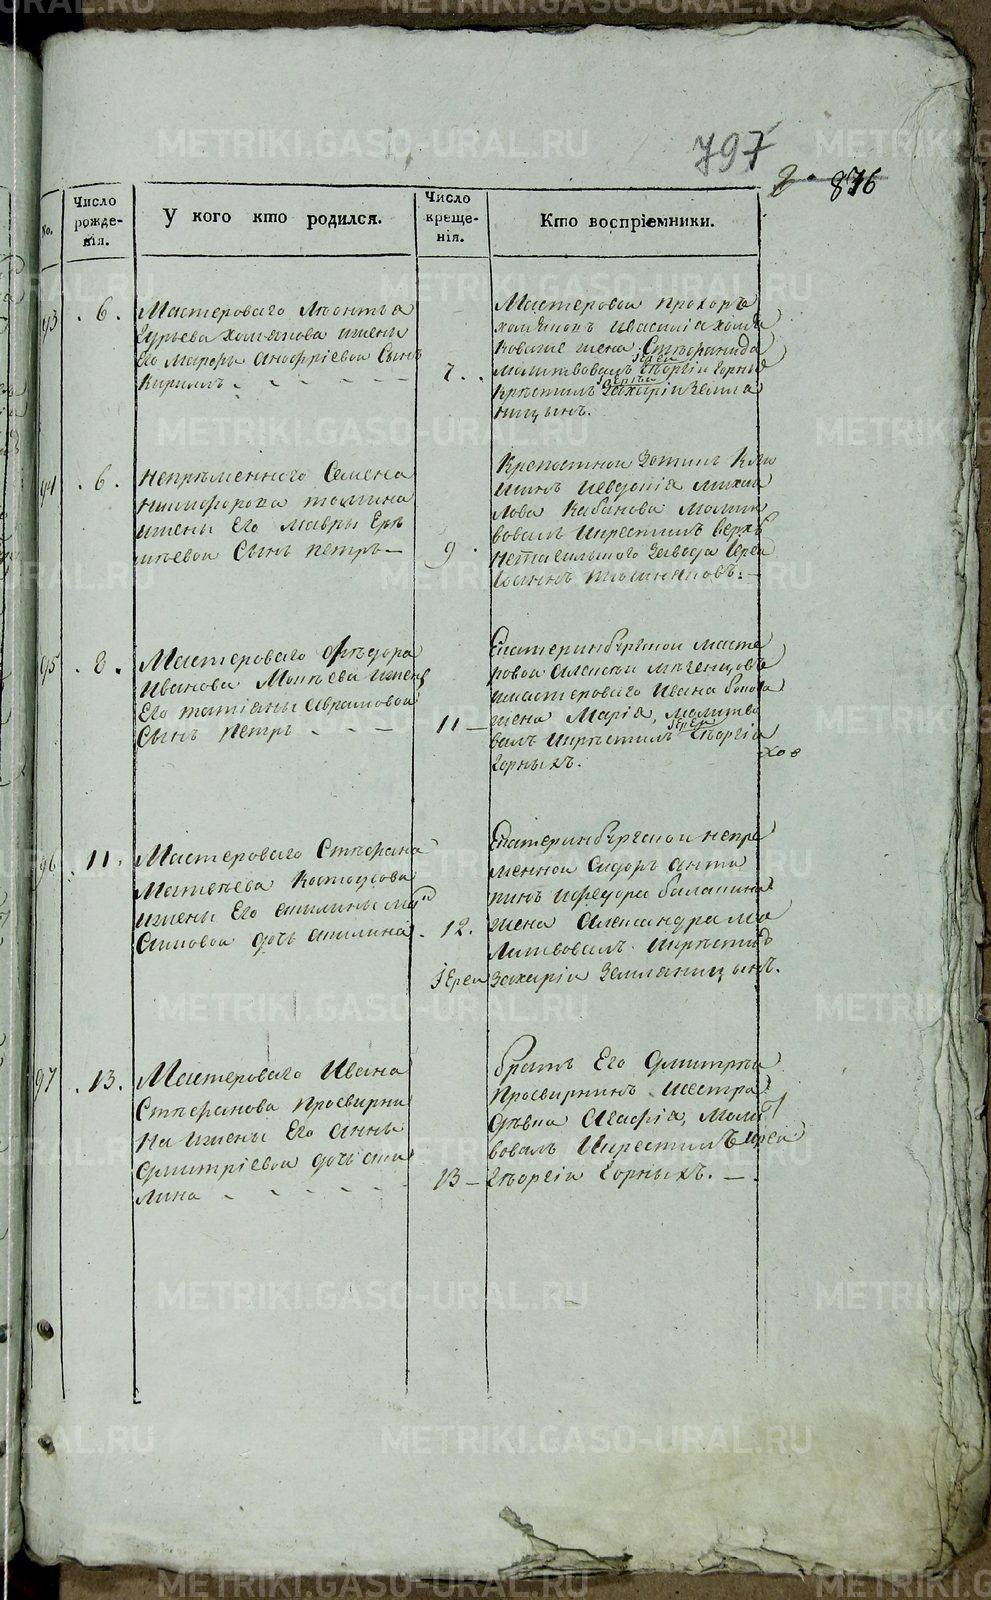 METRIKI.GASO-URAL.RU
797
876
No.
Число рожде-нія.
У кого кто родился.
Число креще-нія.
Кто воспріемники.
93
6.
Мастероваго Леонтья
Гурьева Хомякова и жены
Его Марфы Анофріевой Сынъ
Кирилъ
7.
Мастеровои Прохоръ
Хомяковъ и Василіа Хомя
кова же жена Стефанида
Молитвовалъ Іереи Георгіи Горныхъ
Крестилъ Іереи Захаріи Земля
ницынъ.
94
6.
Непременного Семена
Никифорова Томина
и жены Его Мавры Ере
меевои Сынъ Петръ
9.
Крепостнои Зотикъ
и Евдокіа Михаи
лова Кабанова Молит
вовалъ и крестилъ Верхъ
Нетагильского Завода Іереи
Іоаннъ
95
8.
Мастероваго Федора
Иванова Мокеева и жены
Его Татіаны Аврамовои
Сынъ Петръ
11
Екатеринбургскои масте
ровои Алексеи
и мастероваго Ивана Попова
жена Маріа, Молитво
валъ и крестилъ Іереи Георгіи
Горныхъ.
96
11.
Мастероваго Стефана
Матвеева Костоусова
и жены Его Акилины Ма
симовои дочь Акилина.
12.
Екатеринбургскои непре
меннои Сидоръ Анти
пинъ и Федора Балакина
жена Александра Мо
литвовалъ и крестилъ
Іереи Захаріи Земляницынъ.
97
13.
Мастероваго Ивана
Стефанова Просвирни
на и жены Его Анны
Дмитріевои дочь Аки
лина
13
Братъ Его Дмитреи
Просвирнинъ и Сестра
Девка Агафіа, Молит
вовалъ и крестилъ Іереи
Георгіи Горныхъ.